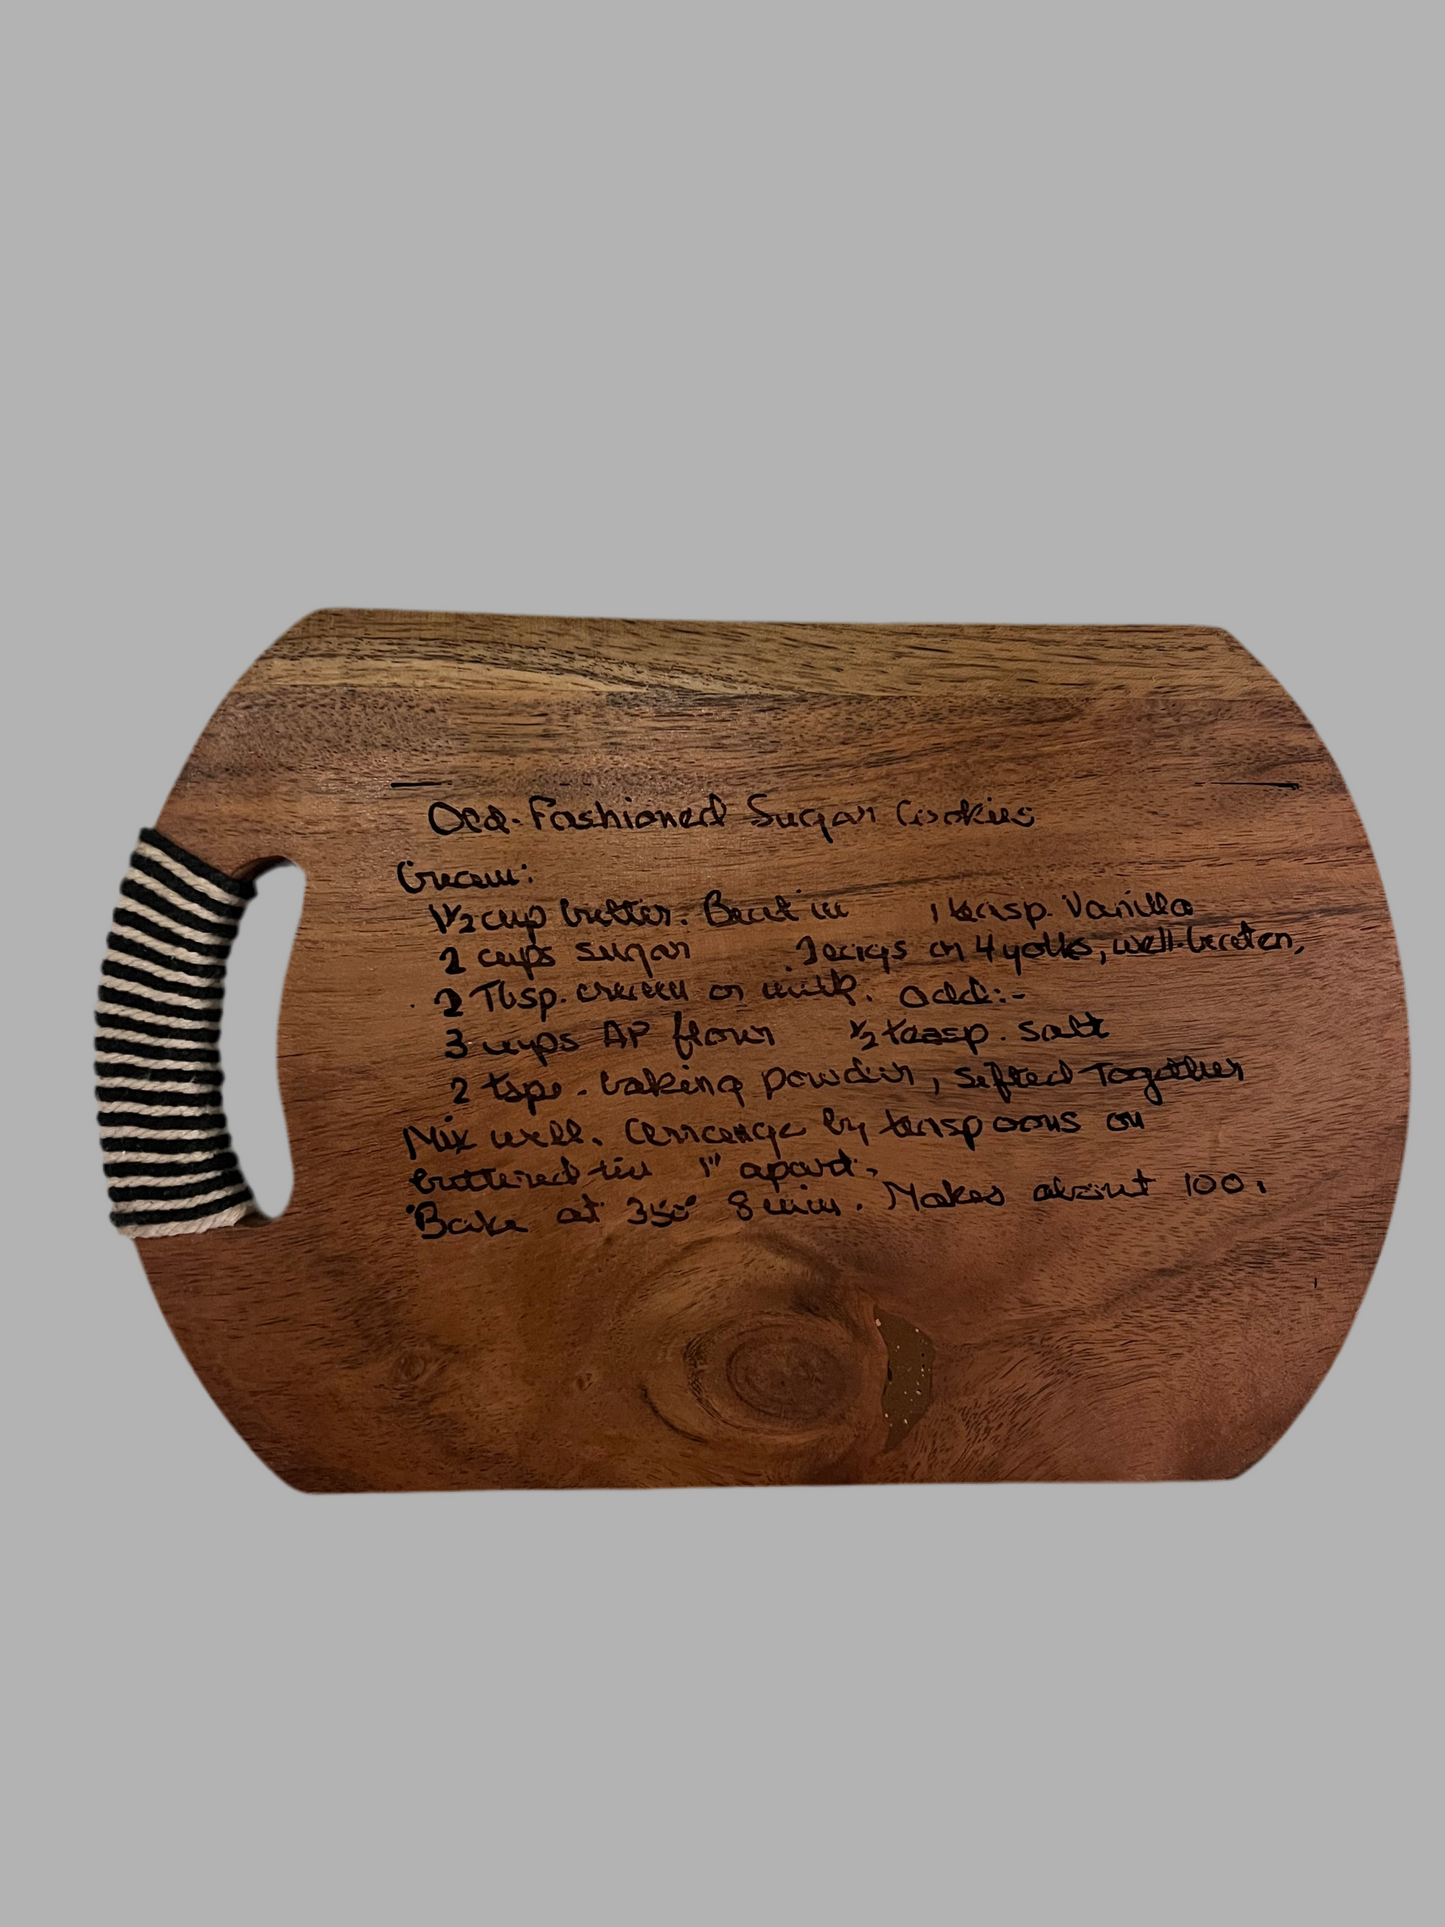 Old-Fashioned Sugar Cookies
Cream:
1½ cup butter. Beat in 1 teasp. Vanilla
2 cups sugar eggs or 4 yolks, well-beaten,
2 Tbsp. cream or milk. Add:-
3 cups AP flour ½ teasp. Salt
2 tsps. baking powder, sifted Together
Mix well. arrange by teaspoons on
buttered tin 1" apart.
Bake at 350° 8 min. Makes about 100.